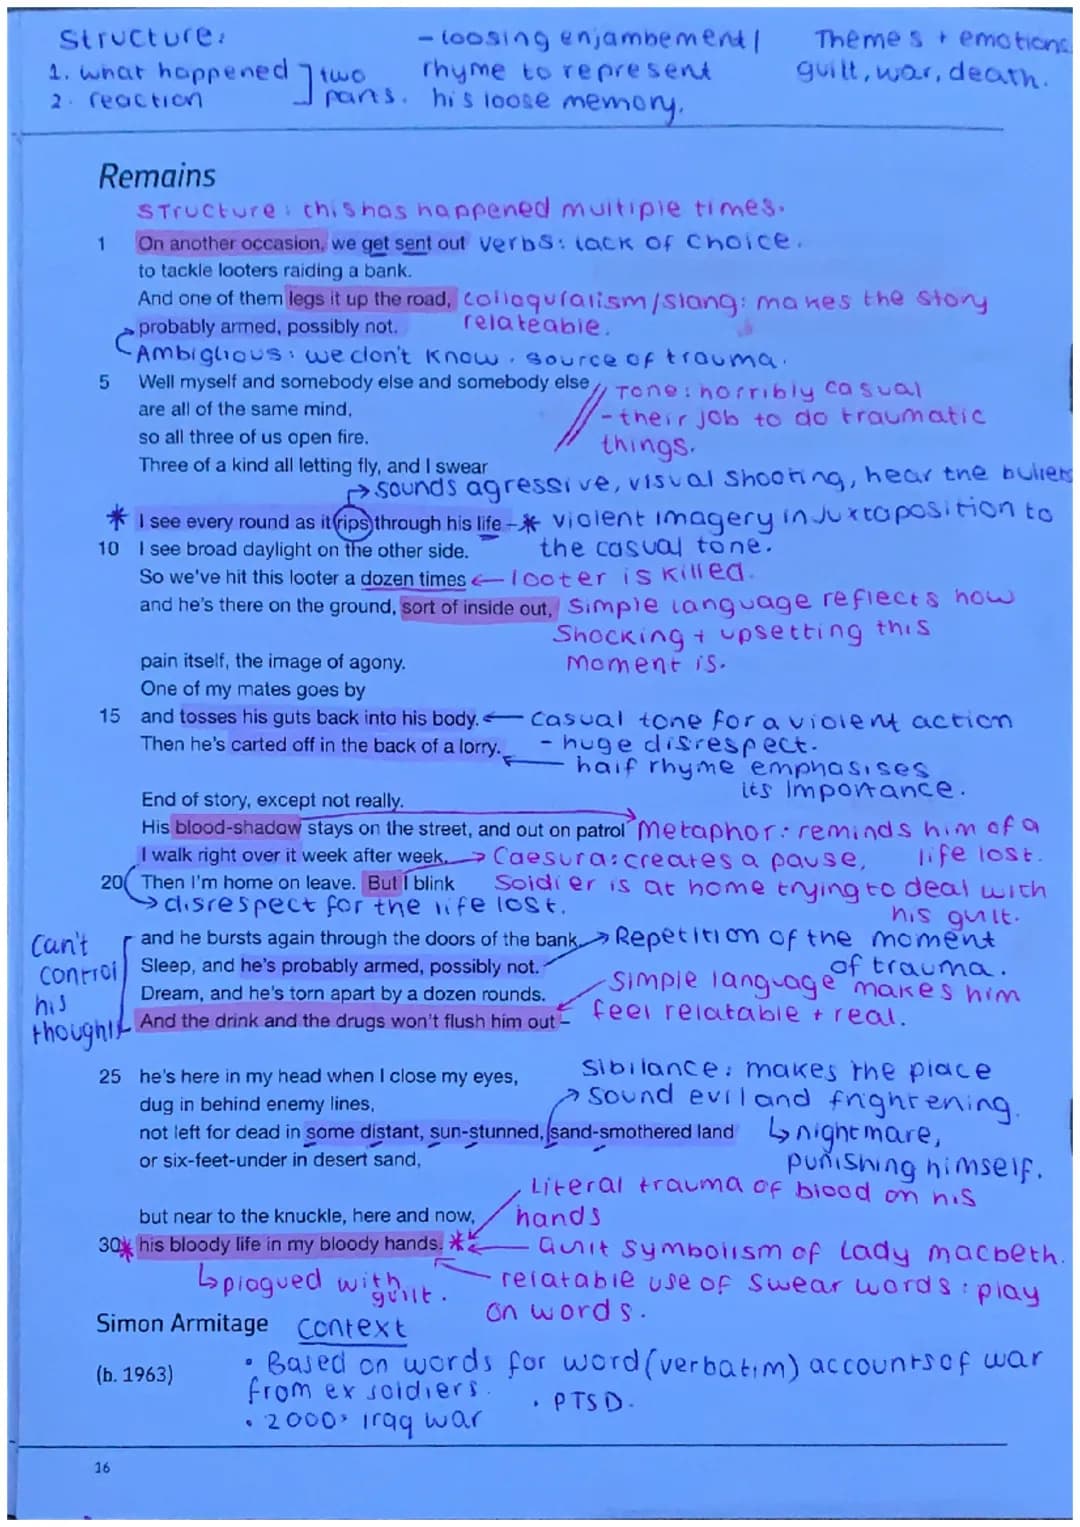 Structure:
1. what happened
2. reaction
two parts.
- loosing enjambement /
rhyme to represent
his loose memory.
Themes + emotions
guilt, war, death.
Remains
Structure: this has happened multiple times.
1 On another occasion, we get sent out verbs: lack of choice.
to tackle looters raiding a bank.
And one of them legs it up the road, colloquialism/slang: makes the story
relateable.
probably armed, possibly not.
Ambiglious: we don't know. source of trauma.
5 Well myself and somebody else and somebody else Tone: horribly casual
are all of the same mind, - their job to do traumatic
so all three of us open fire. things.
Three of a kind all letting fly, and I swear
sounds agressive, visual shooting, hear the bullets
* I see every round as it rips through his life – * violent imagery in juxtaposition to
10 I see broad daylight on the other side. the casual tone.
So we've hit this looter a dozen times looter is killed.
and he's there on the ground, sort of inside out, Simple language reflects how
shocking + upsetting this
pain itself, the image of agony. moment is.
One of my mates goes by
15 and tosses his guts back into his body. Casual tone for a violent action
Then he's carted off in the back of a lorry. - huge disrespect.
half rhyme emphasises
its importance.
End of story, except not really.
His blood-shadow stays on the street, and out on patrol Metaphor: reminds him of a
life lost.
I walk right over it week after week. Caesura: creates a pause,
20 Then I'm home on leave. But I blink Soldier is at home trying to deal with
his guilt.
disrespect for the life lost.
can't control his thoughts
and he bursts again through the doors of the bank. Repetition of the moment
of trauma.
Sleep, and he's probably armed, possibly not.
Dream, and he's torn apart by a dozen rounds. Simple language makes him
And the drink and the drugs won't flush him out – feel relatable + real.
25 he's here in my head when I close my eyes, Sibilance: makes the place
dug in behind enemy lines, sound evil and frightening.
not left for dead in some distant, sun-stunned, sand-smothered land nightmare,
or six-feet-under in desert sand, punishing himself.
Literal trauma of blood on his
but near to the knuckle, here and now, hands
30 * his bloody life in my bloody hands. * Guilt symbolism of Lady macbeth.
plagued with guilt. relatable use of swear words: play
on words.
Simon Armitage Context
(b. 1963) • Based on words for word (verbatim) accounts of war
from ex soldiers. • PTSD.
• 2000s iraq war
16